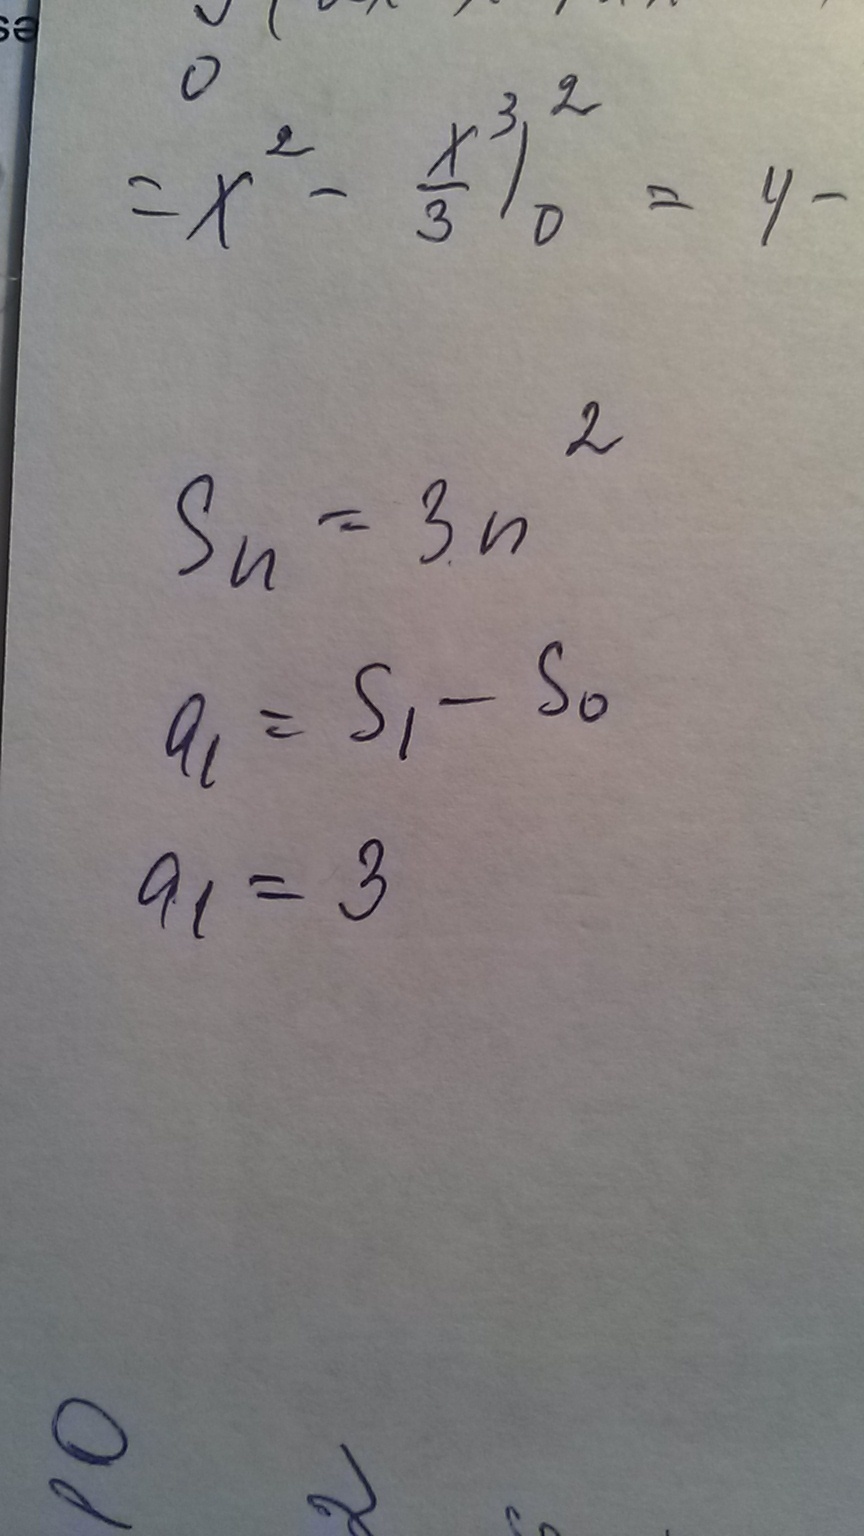 0
= x² - x³/3 |₀² = 4 -
Sₙ = 3n²
a₁ = S₁ - S₀
a₁ = 3